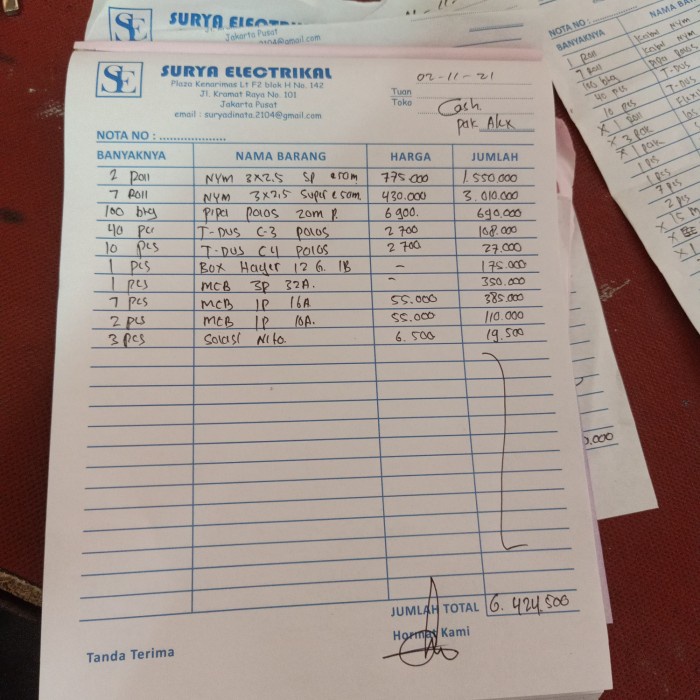 SURYA ELECTR
Jakarta Pusat
2104@gmail.com
SE
SURYA ELECTRIKAL
Plaza Kenarimas Lt F2 blok H No. 142
Jl. Kramat Raya No. 101
Jakarta Pusat
email : suryadinata.2104@gmail.com
02-11-21
Tuan
Toko
Cash
pak Alex
NOTA NO : ....................
BANYAKNYA NAMA BARANG HARGA JUMLAH
2 Roll NYM 3x2.5 SP erom 775.000 1.550.000
7 Roll NYM 3x2,5 Super e som 430.000 3.010.000
100 btg PIPA POLOS 20m P. 6 900. 690.000
40 pcs T-DUS C-3 POLOS 2 700 108.000
10 pcs T-DUS C4 POLOS 2 700 27.000
1 pcs BOX Hager 12 G. IB - 175.000
1 pcs MCB 3P 32A. - 350.000
7 pcs MCB 1P 16A 55.000 385.000
2 pcs MCB 1P 10A. 55.000 110.000
3 pcs Solasi Nito 6.500 19.500
JUMLAH TOTAL 6.424.500
Hormat Kami
Tanda Terima
NOTA NO :
BANYAKNYA NAMA BA
1 Roll Kabel NYM
7 Roll Kabel NYM
100 btg Pipa
40 pcs T-DUS
10 pcs T-DUS
X 3 pak
X 1 pak
1 pcs
1 pcs
7 pcs
2 pcs
X 15 m
0.000